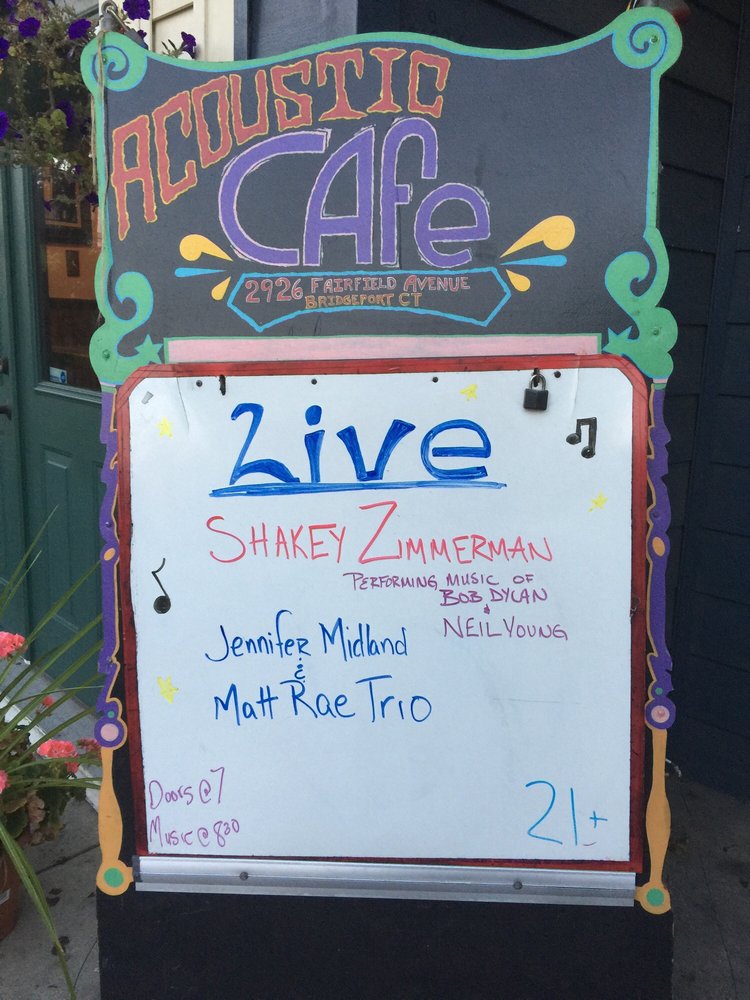 ACOUSTIC
CAfe
2926 FAIRFIELD AVENUE
BRIDGEPORT CT
Live
SHAKEY ZIMMERMAN
PERFORMING MUSIC OF
BOB DYLAN
&
NEIL YOUNG
Jennifer Midland
&
Matt Rae Trio
Doors @ 7
Music @ 830
21+